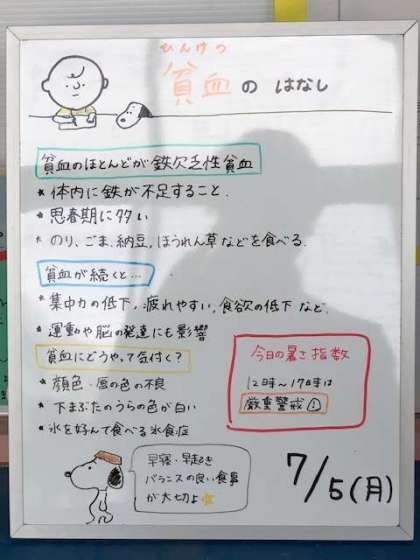 ひんけつ
貧血の はなし
貧血のほとんどが鉄欠乏性貧血
* 体内に鉄が不足すること.
* 思春期に多い
* のり、ごま、納豆、ほうれん草などを食べる.
貧血が続くと…
* 集中力の低下、疲れやすい、食欲の低下 など.
* 運動や脳の発達にも影響
貧血にどうやって気付く?
* 顔色・唇の色の不良
* 下まぶたのうらの色が白い
* 氷を好んで食べる氷食症
今日の暑さ指数
12時~17時は
厳重警戒!
早寝・早起き
バランスの良い食事
が大切よ
7/5(月)